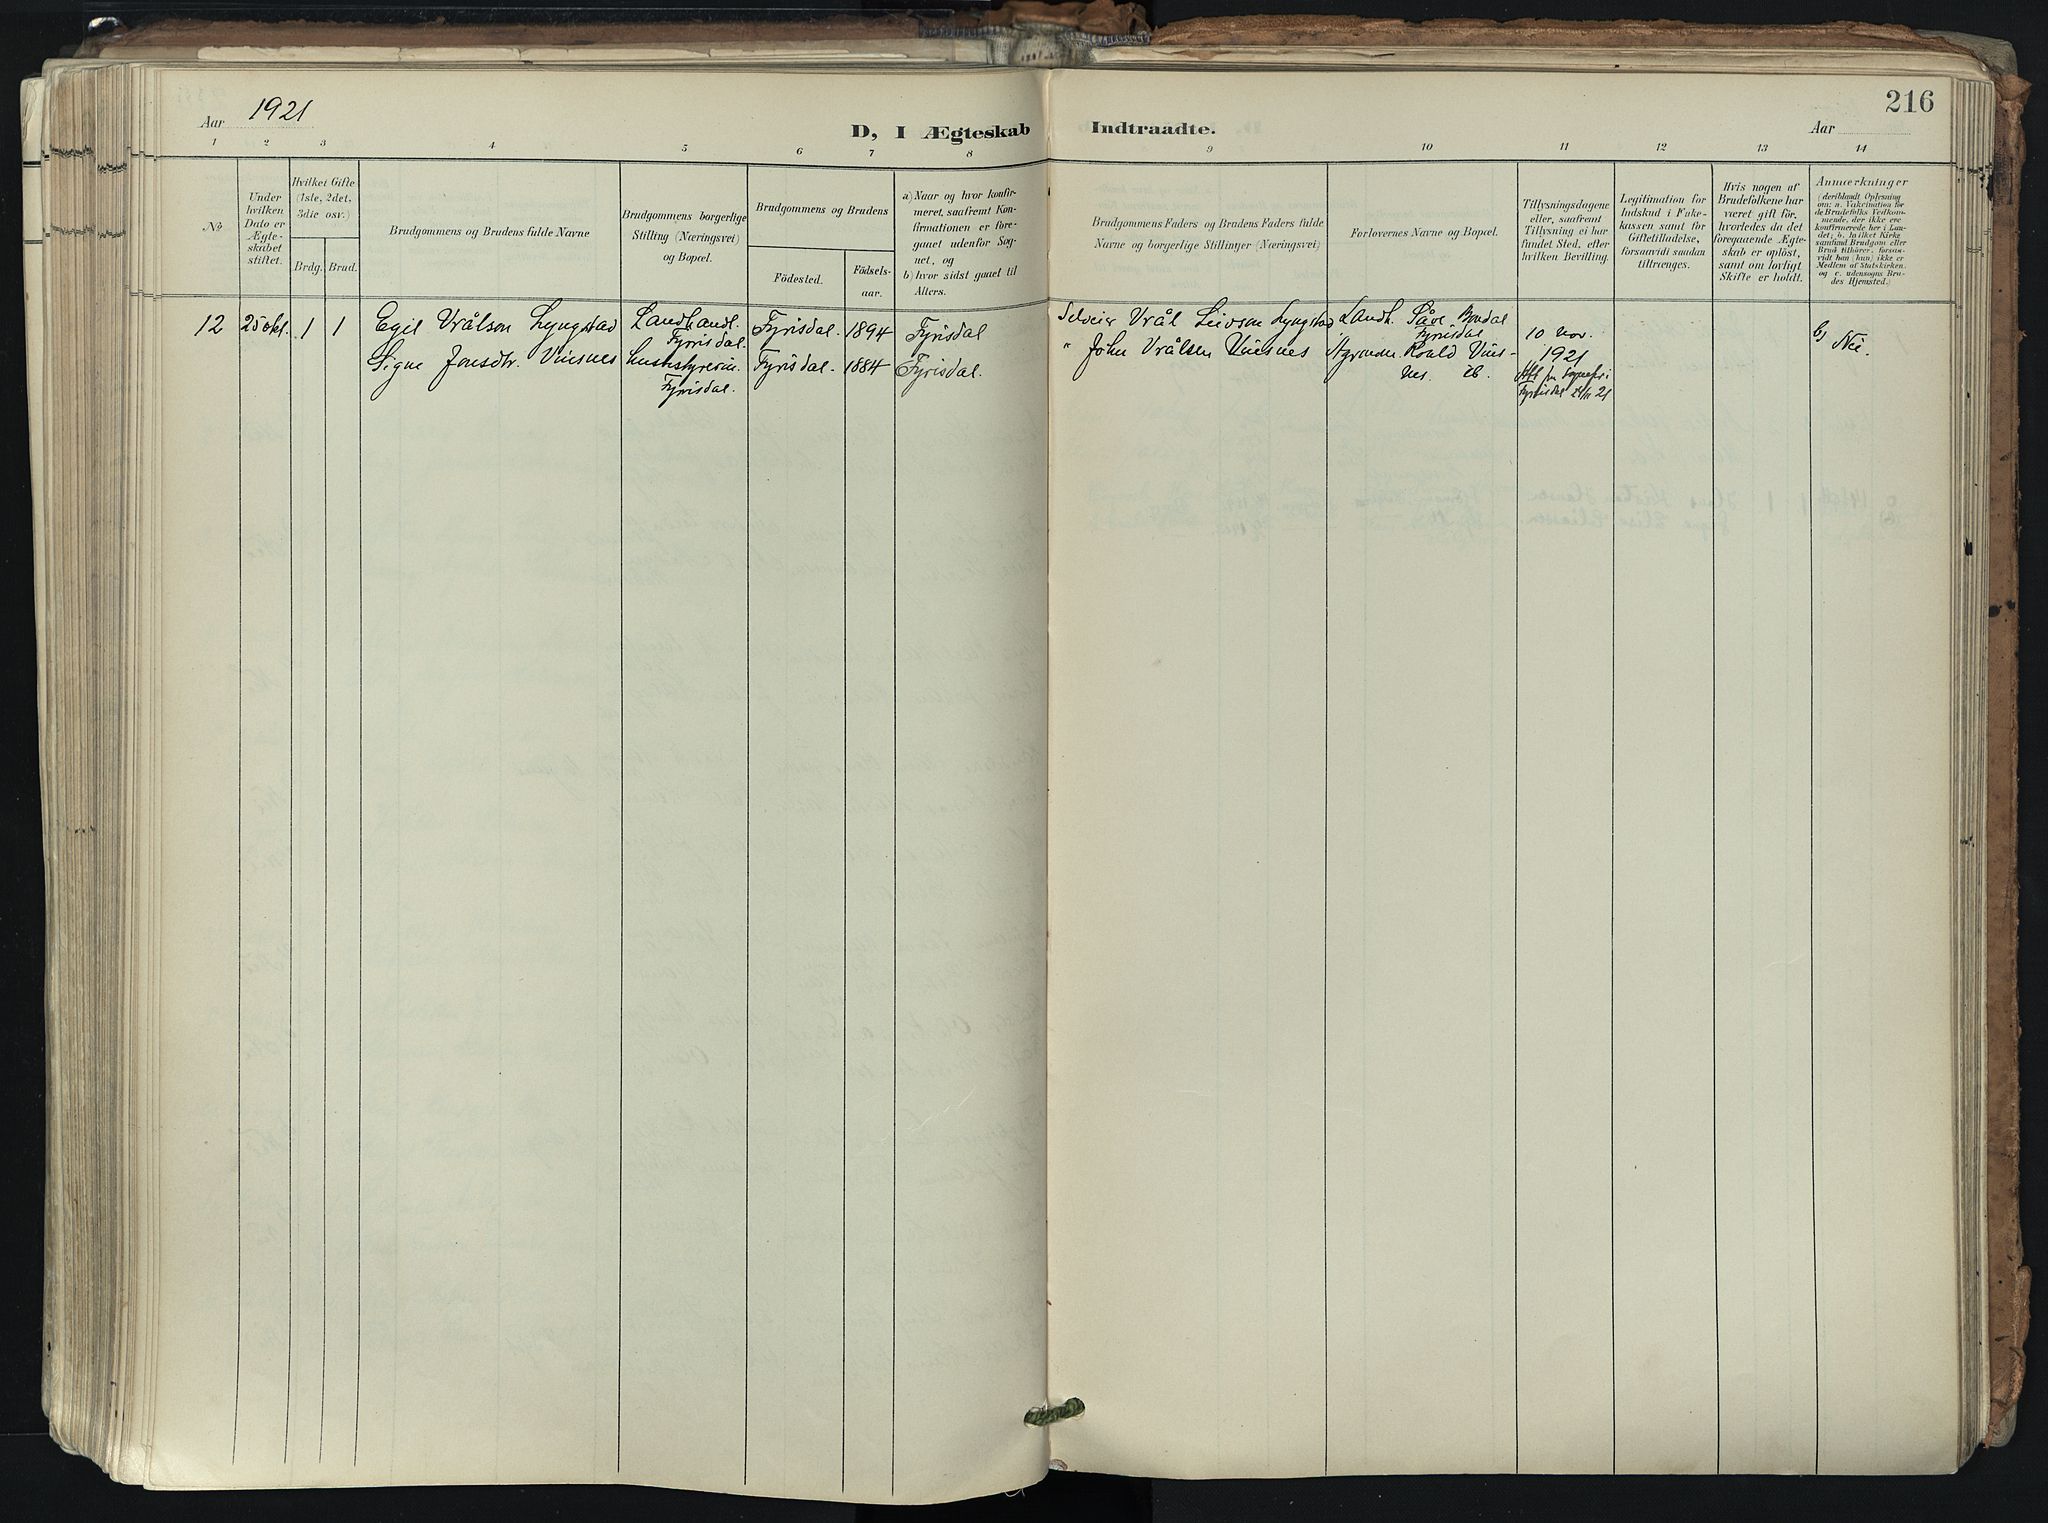 Aar 1921
D, I Ægteskab
1 2 3 4 5 6 7 8
No
Under hvilken Dato er Ægteskabet stiftet.
Hvilket Gifte (1ste, 2det, 3die osv.)
Brdg. Brud.
Brudgommens og Brudens fulde Navne
Brudgommens borgerlige Stilling (Næringsvei) og Bopæl.
Brudgommens og Brudens
Födested.
Födsels-aar.
a) Naar og hvor konfirmeret, saafremt Konfirmationen er foregaaet udenfor Sognet, og
b) hvor sidst gaaet til Alters.
12 25 okt. 1 1 Egil Vrålson Lyngstad Landhandl. Fyrisdal. 1894 Fyrisdal
Fyrisdal.
Signe Jonsdtr. Vinsnes husstyrerin. Fyrisdal. 1884 Fyrisdal.
Fyrisdal.
216
Indtraadte.
Aar
9 10 11 12 13 14
Brudgommens Faders og Brudens Faders fulde Navne og borgerlige Stillinger (Næringsvei)
Forlovernes Navne og Bopæl.
Tillysningsdagene eller, saafremt Tillysning ei har fundet Sted, efter hvilken Bevilling.
Legitimation for Indskud i Enkekassen samt for Giftetilladelse, forsaavidt saadan tiltrænges.
Hvis nogen af Brudefolkene har været gift før, hvorledes da det foregaaende Ægteskab er oplöst, samt om lovligt Skifte er holdt.
Anmærkninger
(deriblandt Oplysning om: a. Vakcination for de Brudefolks Vedkommende, der ikke ere konfirmerede her i Landet; b. hvilket Kirkesamfund Brudgom eller Brud tilhörer, forsaavidt han (hun) ikke er Medlem af Statskirken, og c. udensogns Brudes Hjemsted.)
Selveier Vrål Leivson Lyngstad Landh. Såve Mondal 10 nov. b) Nei.
Fyrisdal
" John Vrålsen Vinsnes Roald Vins- 1921
nes. ib.
Fyrisdal 21